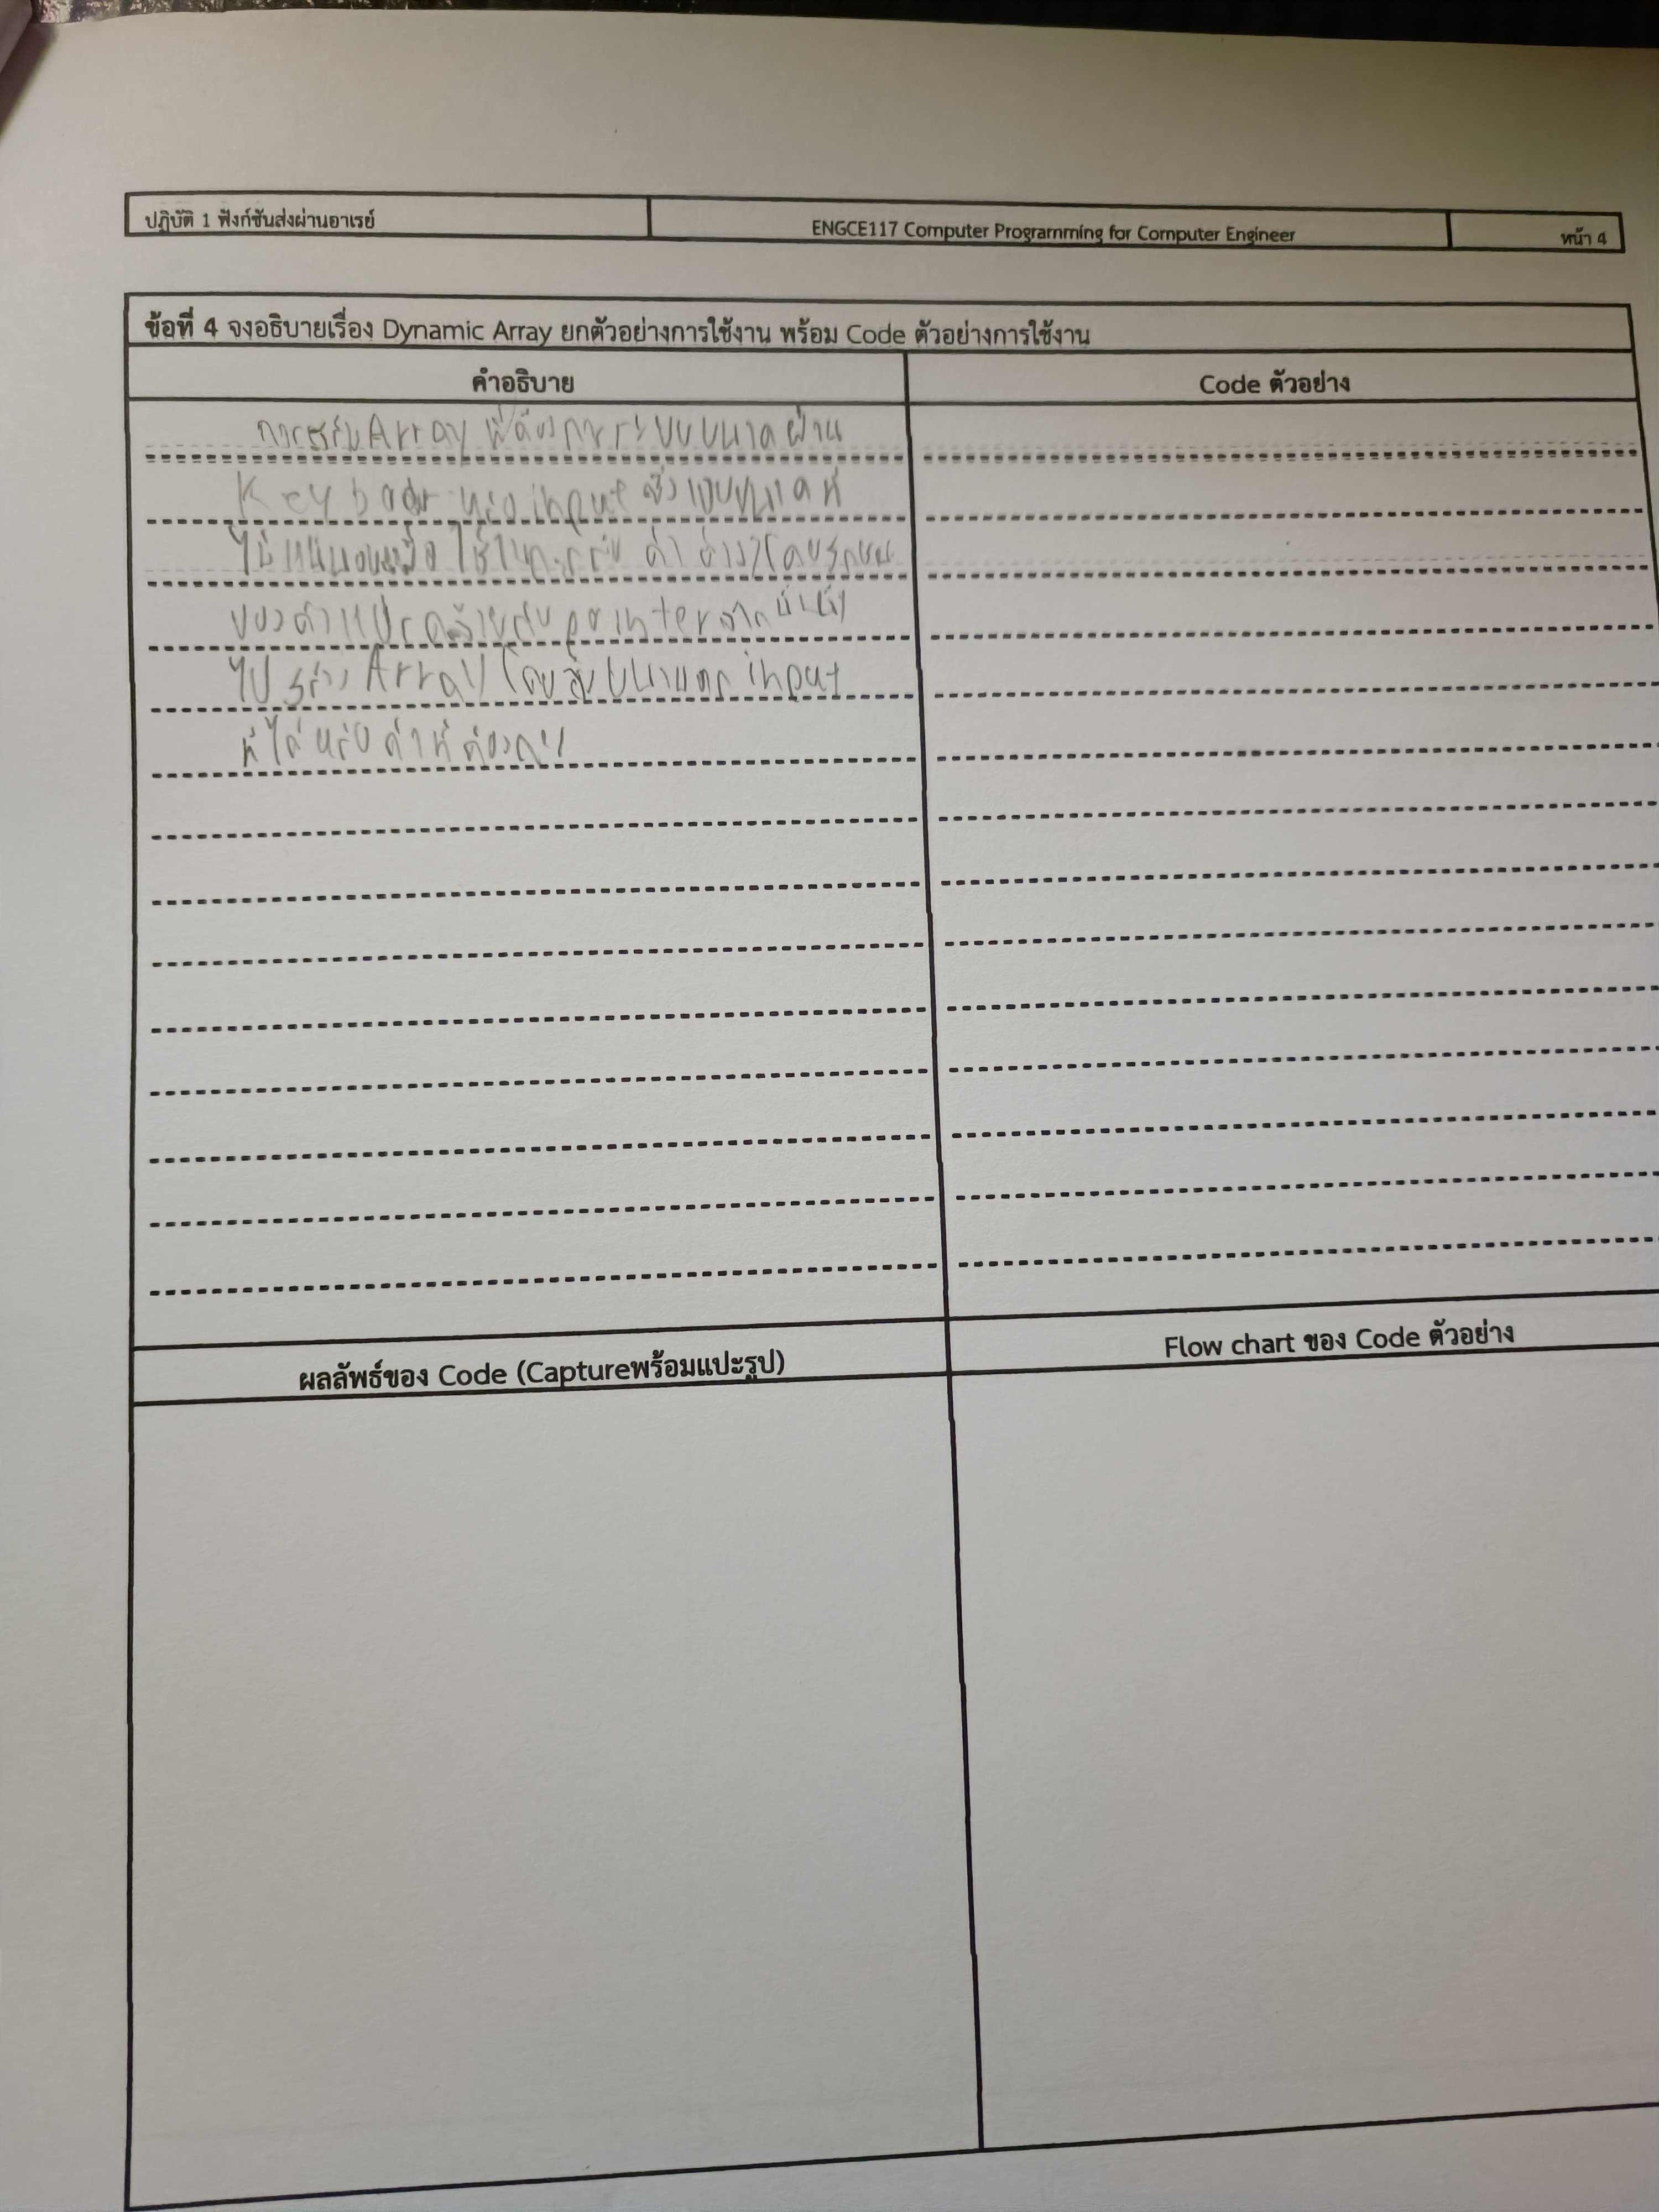 ปฏิบัติ 1 ฟังก์ชันส่งผ่านอาเรย์
ENGCE117 Computer Programming for Computer Engineer
หน้า 4
ข้อที่ 4 จงอธิบายเรื่อง Dynamic Array ยกตัวอย่างการใช้งาน พร้อม Code ตัวอย่างการใช้งาน
คำอธิบาย
Code ตัวอย่าง
Array ที่ต้องการระบุขนาดผ่าน
input ซึ่งแบบขนาดที่
ไม่แน่นอน ใช้ในการรับ ค่า
ของตัวแปรคล้ายกับ pointer จากนั้น
ไป สร้าง Array โดย input
ที่ได้ ค่าที่ต้องการ
ผลลัพธ์ของ Code (Captureพร้อมแปะรูป)
Flow chart ของ Code ตัวอย่าง